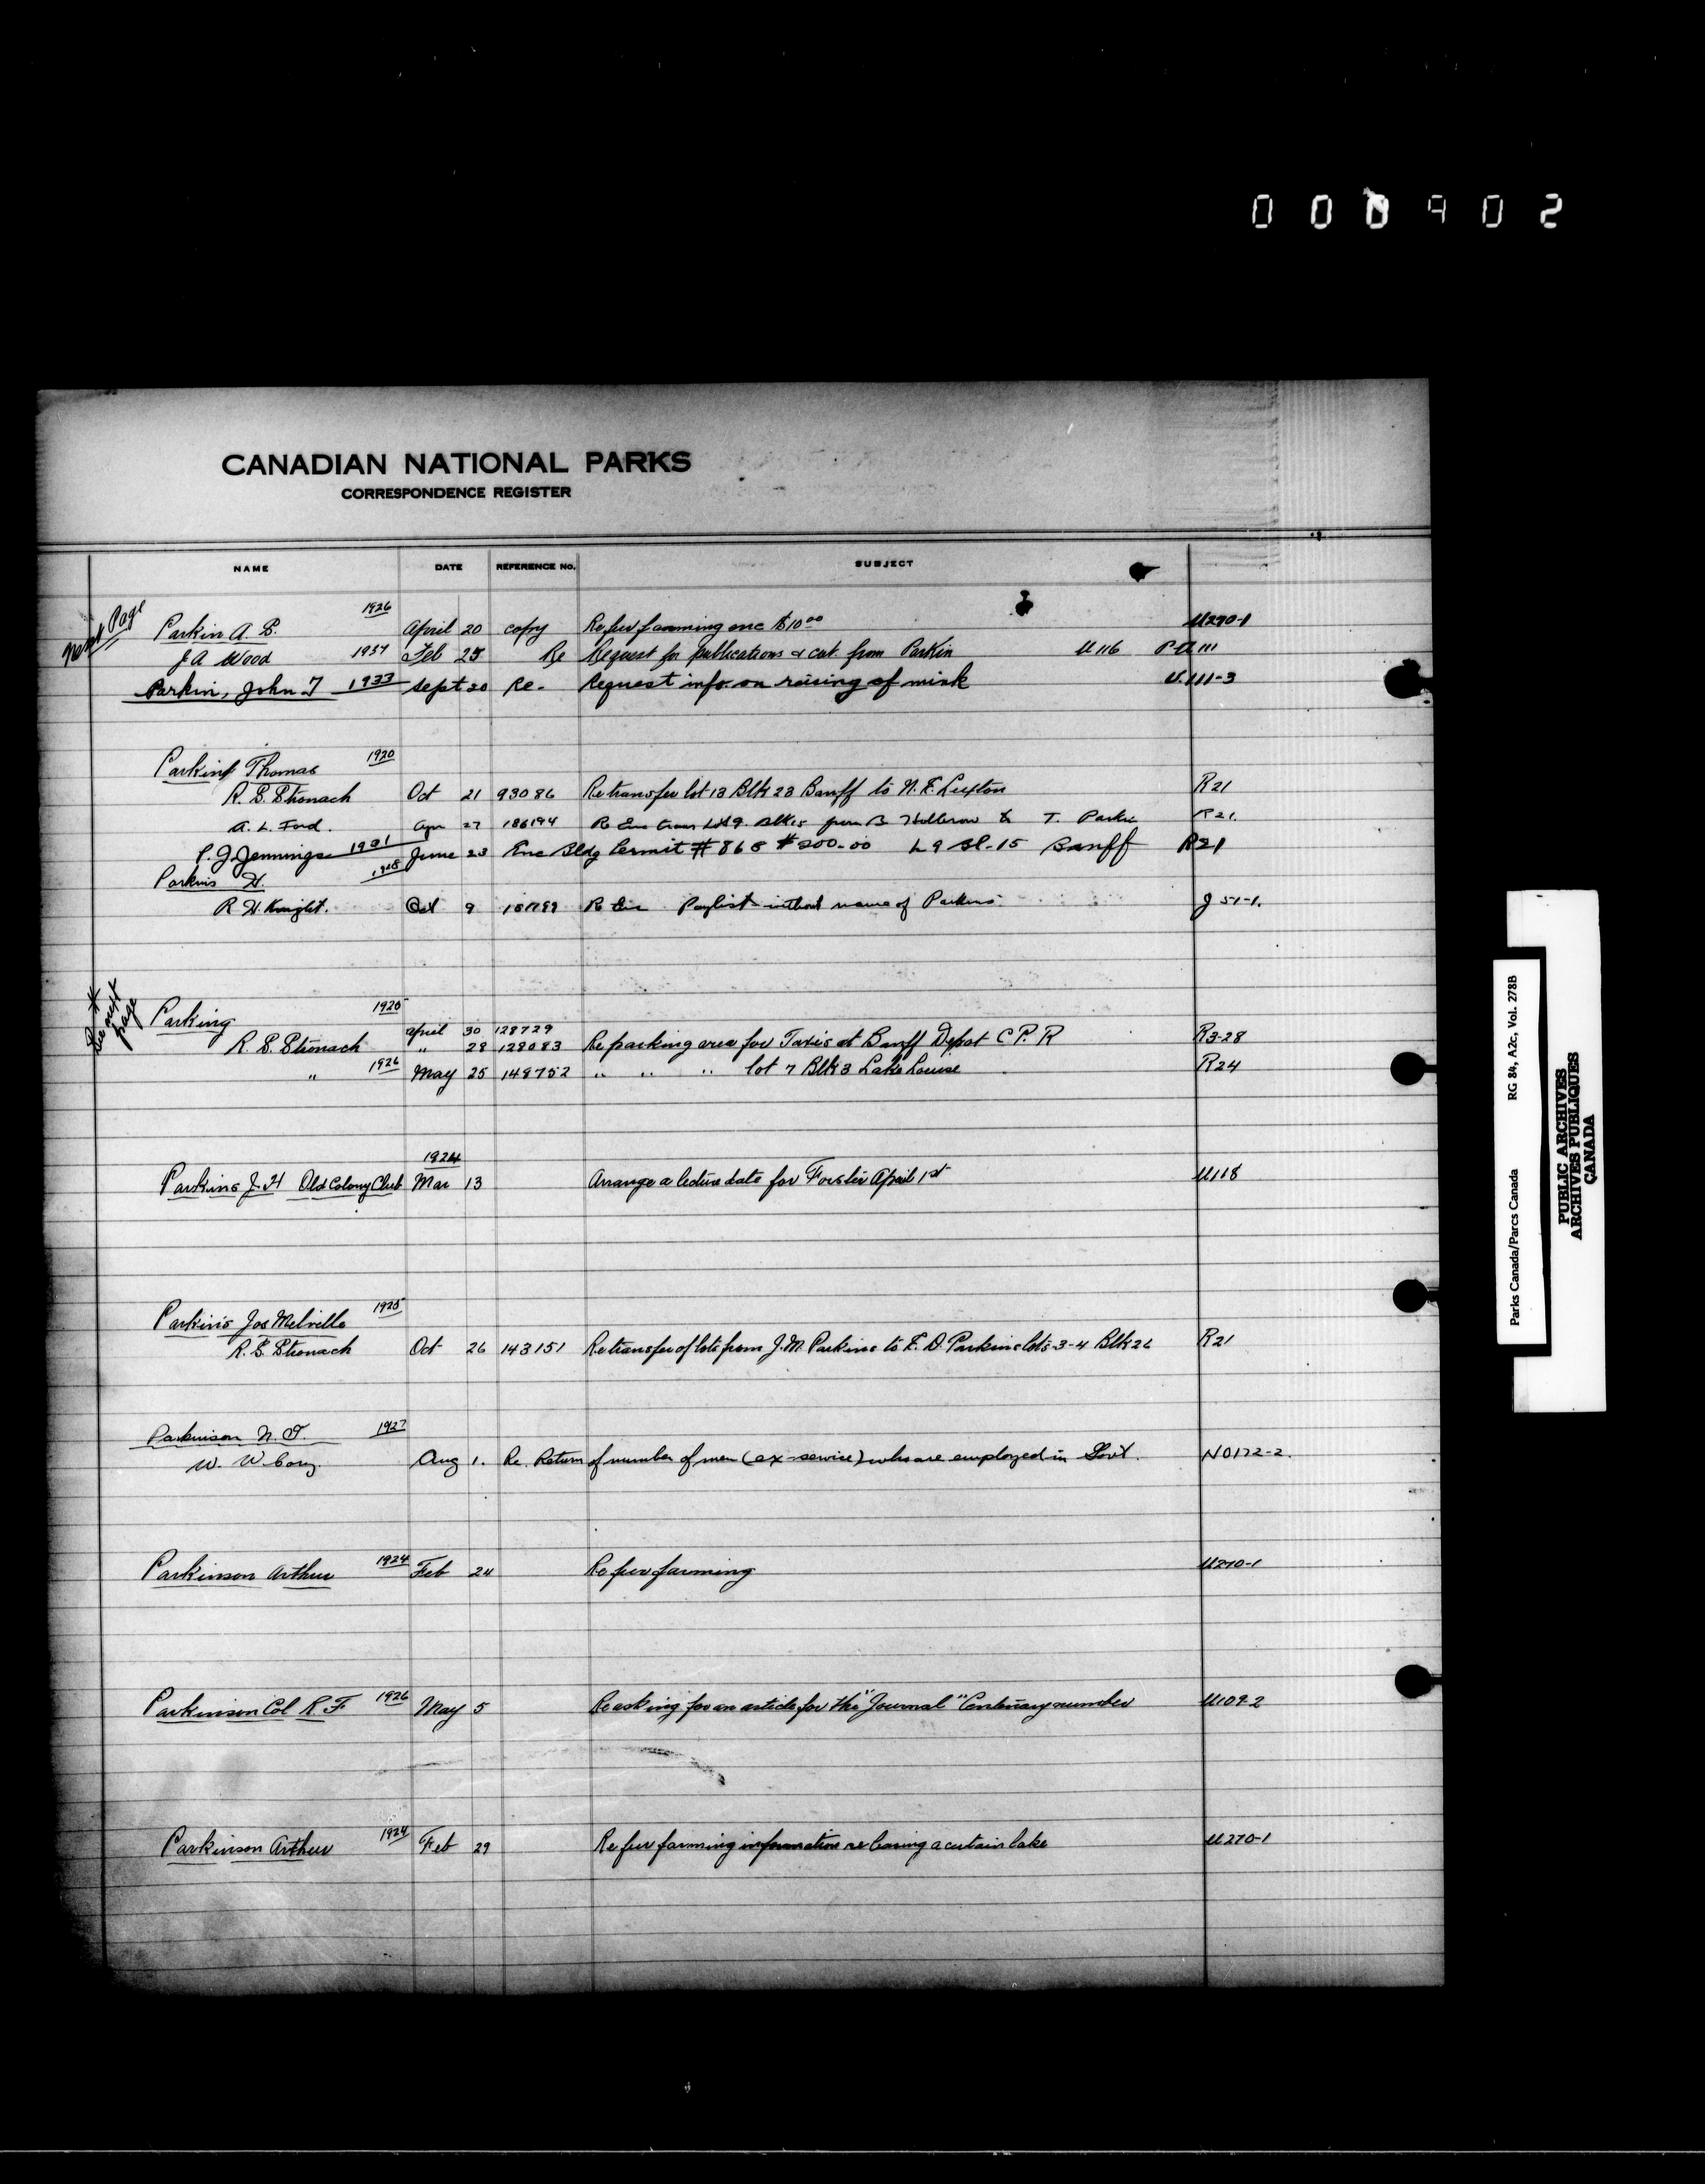 000902
CANADIAN NATIONAL PARKS
CORRESPONDENCE REGISTER
NAME DATE REFERENCE No. SUBJECT
Next Page
1926
Parkin A. B. April 20 copy Re fur farming enc $10.00 U270-1
J A Wood Feb 25 Re Request for publications & cut. from Parkin U116 PA 111
Parkin, John T 1933 Sept 20 Re- Request info. on raising of mink U.111-3
Parkin Thomas 1920
R. S. Stronach Oct 21 93086 Re transfer lot 13 Blk 23 Banff to N. E. Luxton R21
A. L. Ford. Apr 27 186194 Re Enc trans Lot 9. Blk15 from B to T. Parkin R21.
P. J. Jennings 1931 June 23 Enc Bldg Permit # 868 $200.00 L 9 Bl-15 Banff R21
Parkins H. 1928
R. H. Knight. Oct 9 Re Enc Paylist without name of Parkins J 51-1.
* See next page
Parking 1925
April 30 128729
R. S. Stronach " 28 128083 Re parking area for Taxis at Banff Depot C P. R R3-28
" 1926 May 25 148752 " " " lot 7 Blk 3 Lake Louise R24
1924
Parkins J. H Old Colony Club Mar 13 Arrange a lecture date for April 1st U118
Parkins Jos Melville 1925
R. S. Stronach Oct 26 143151 Re transfer of lots from J. M. Parkins to E. D. Parkins lots 3-4 Blk 26 R21
Parkinson N. F. 1927
W. W. Cory. Aug 1. Re. Return of number of men (ex-service) who are employed in Govt. N0172-2.
Parkinson Arthur 1924 Feb 24 Re fur farming U270-1
Parkinson Col R F 1926 May 5 Re asking for an article for the "Journal" Centenary number U109-2
Parkinson Arthur 1924 Feb 29 Re fur farming information re leasing a certain lake U270-1
Parks Canada/Parcs Canada RG 84, A2c, Vol. 278B
PUBLIC ARCHIVES
ARCHIVES PUBLIQUES
CANADA